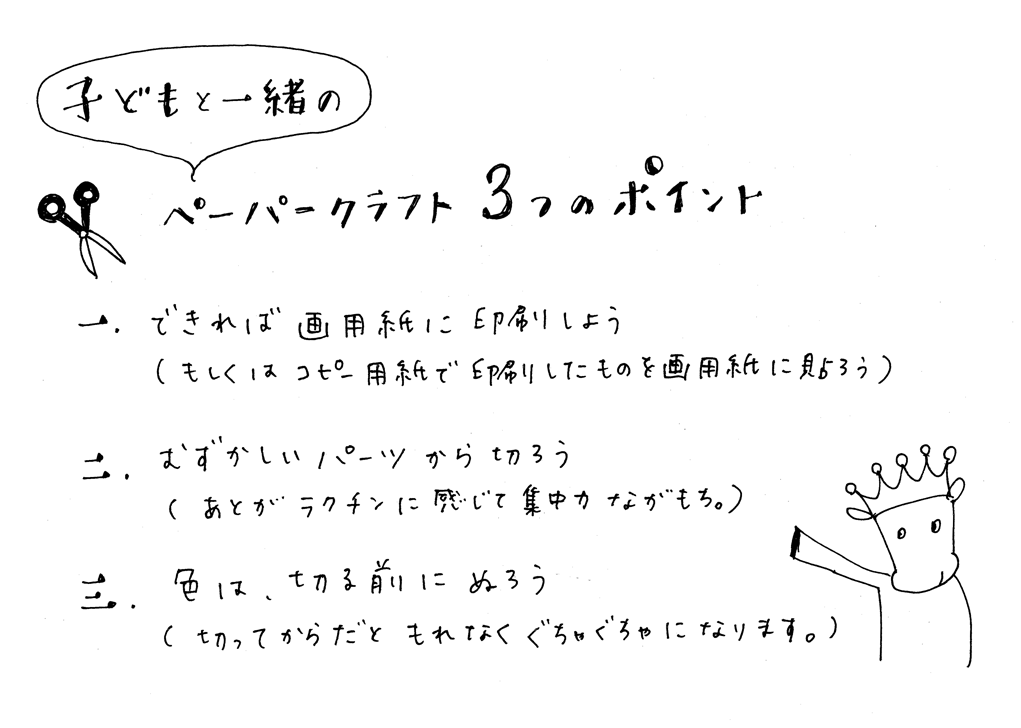 子どもと一緒の
ペーパークラフト 3つのポイント
一. できれば画用紙に印刷しよう
(もしくはコピー用紙で印刷したものを画用紙に貼ろう)
二. むずかしいパーツから切ろう
(あとがラクチンに感じて集中力ながもち。)
三. 色は、切る前にぬろう
(切ってからだともれなくぐちゃぐちゃになります。)